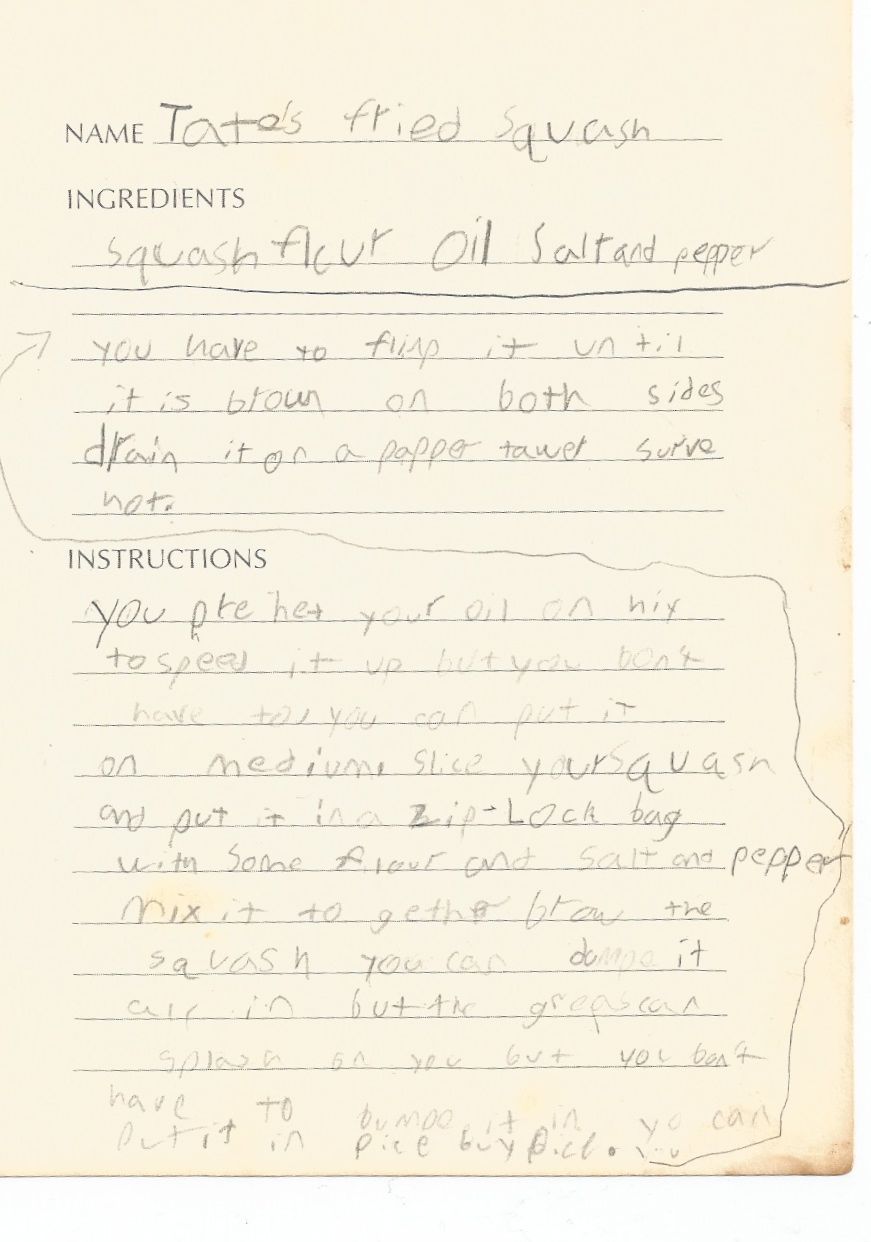 NAME Tate's fried Squash
INGREDIENTS
Squash flour Oil Salt and pepper
you have to flip it until
it is broun on both sides
drain it on a papper tawel surve
hot.
INSTRUCTIONS
you pre het your oil on hiy
to speed it up but you bon't
have to, you can put it
on medium. Slice your Squash
and put it in a Zip-Lock bag
with Some flour and Salt and pepper
Mix it to gether brow the
squash you can dumpe it
all in but the greas can
splash on you but you bon't
have to bumpe it in yo can
Put it in pice buy pice. you